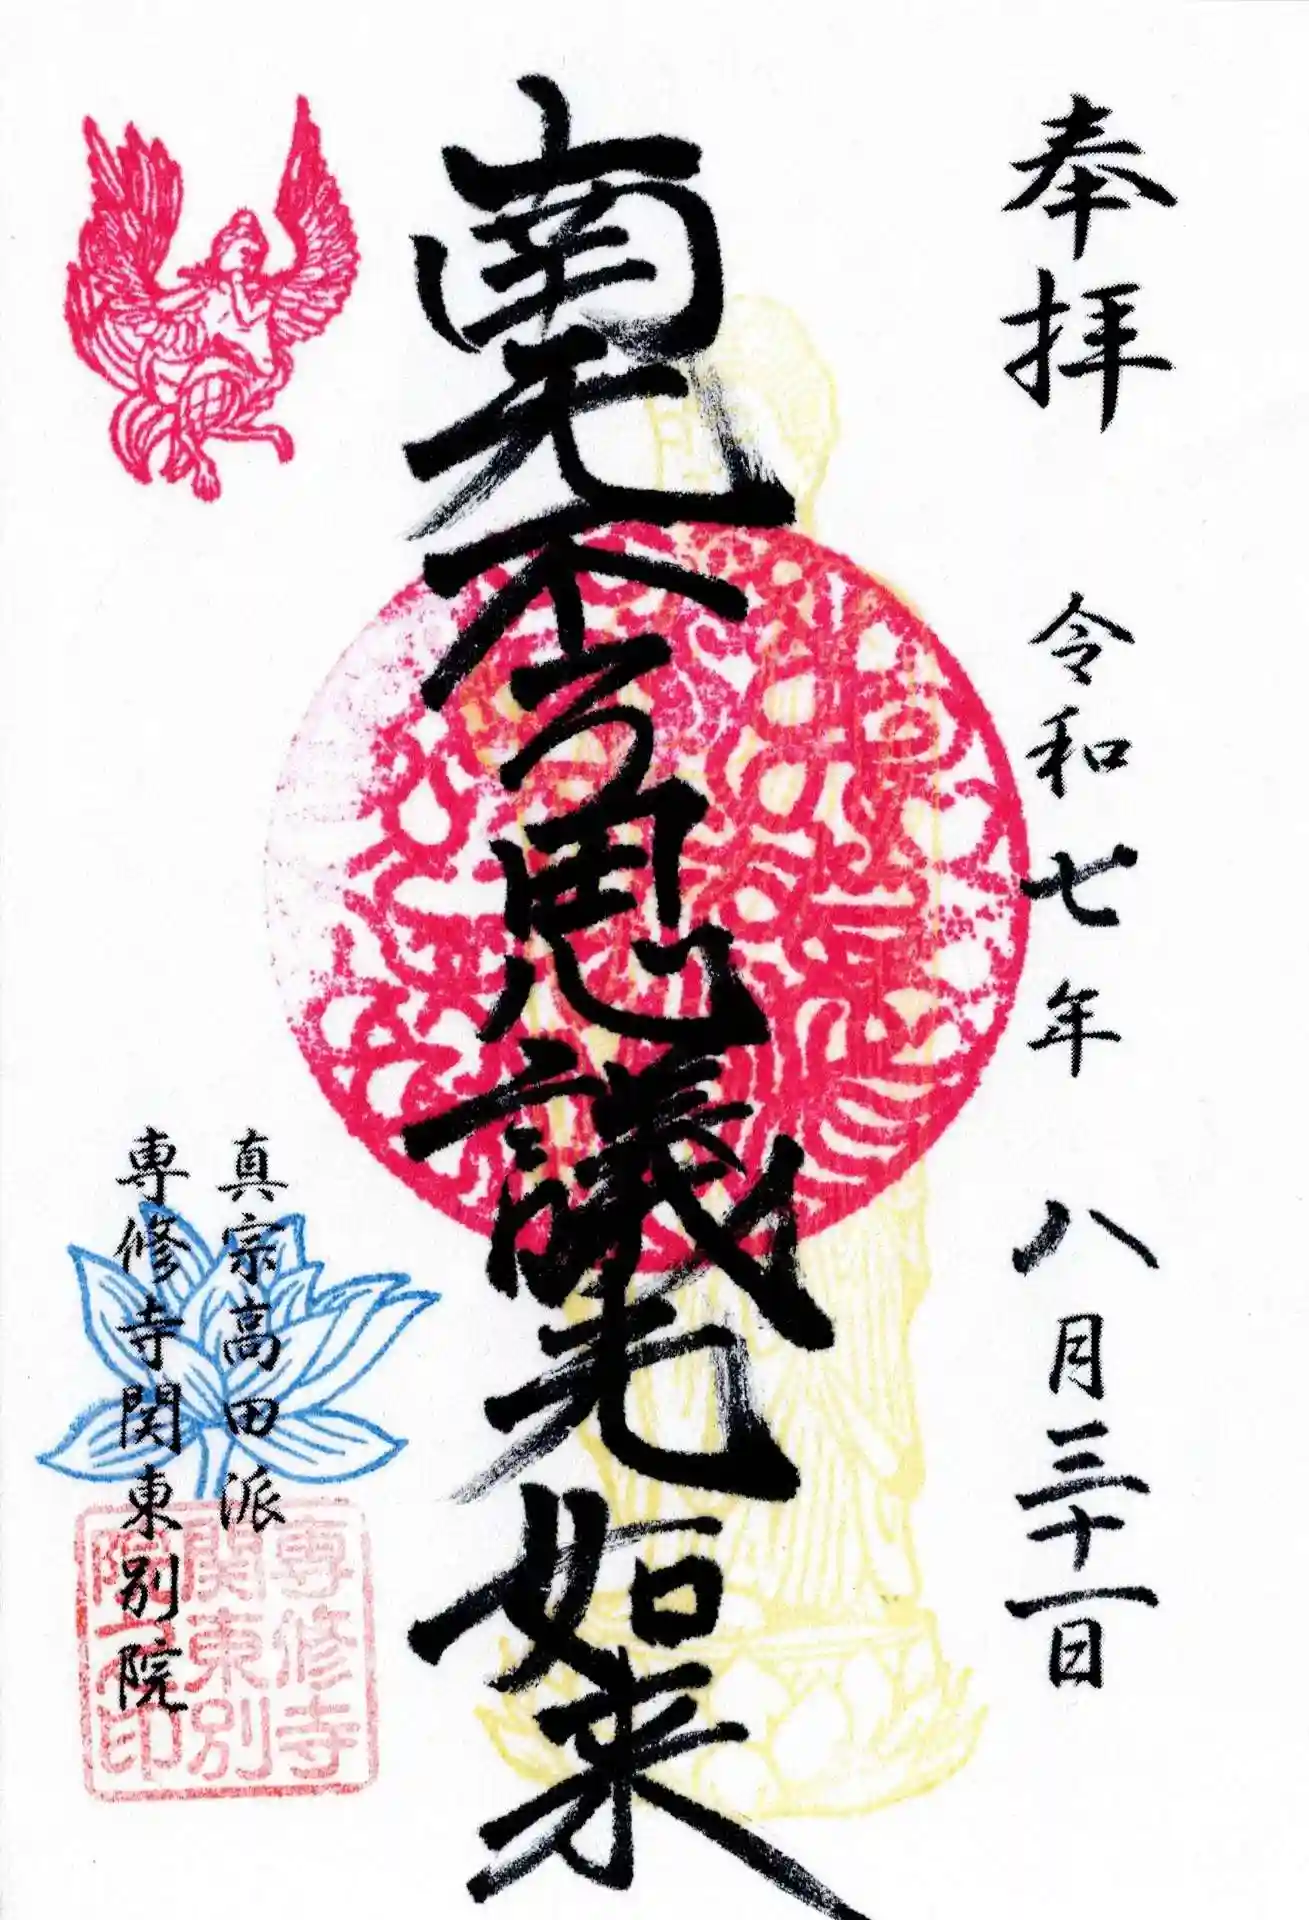 奉拝
令和七年 八月三十一日
南无不可思議光如来
真宗高田派
専修寺関東別院
専修寺
関東別
院之印